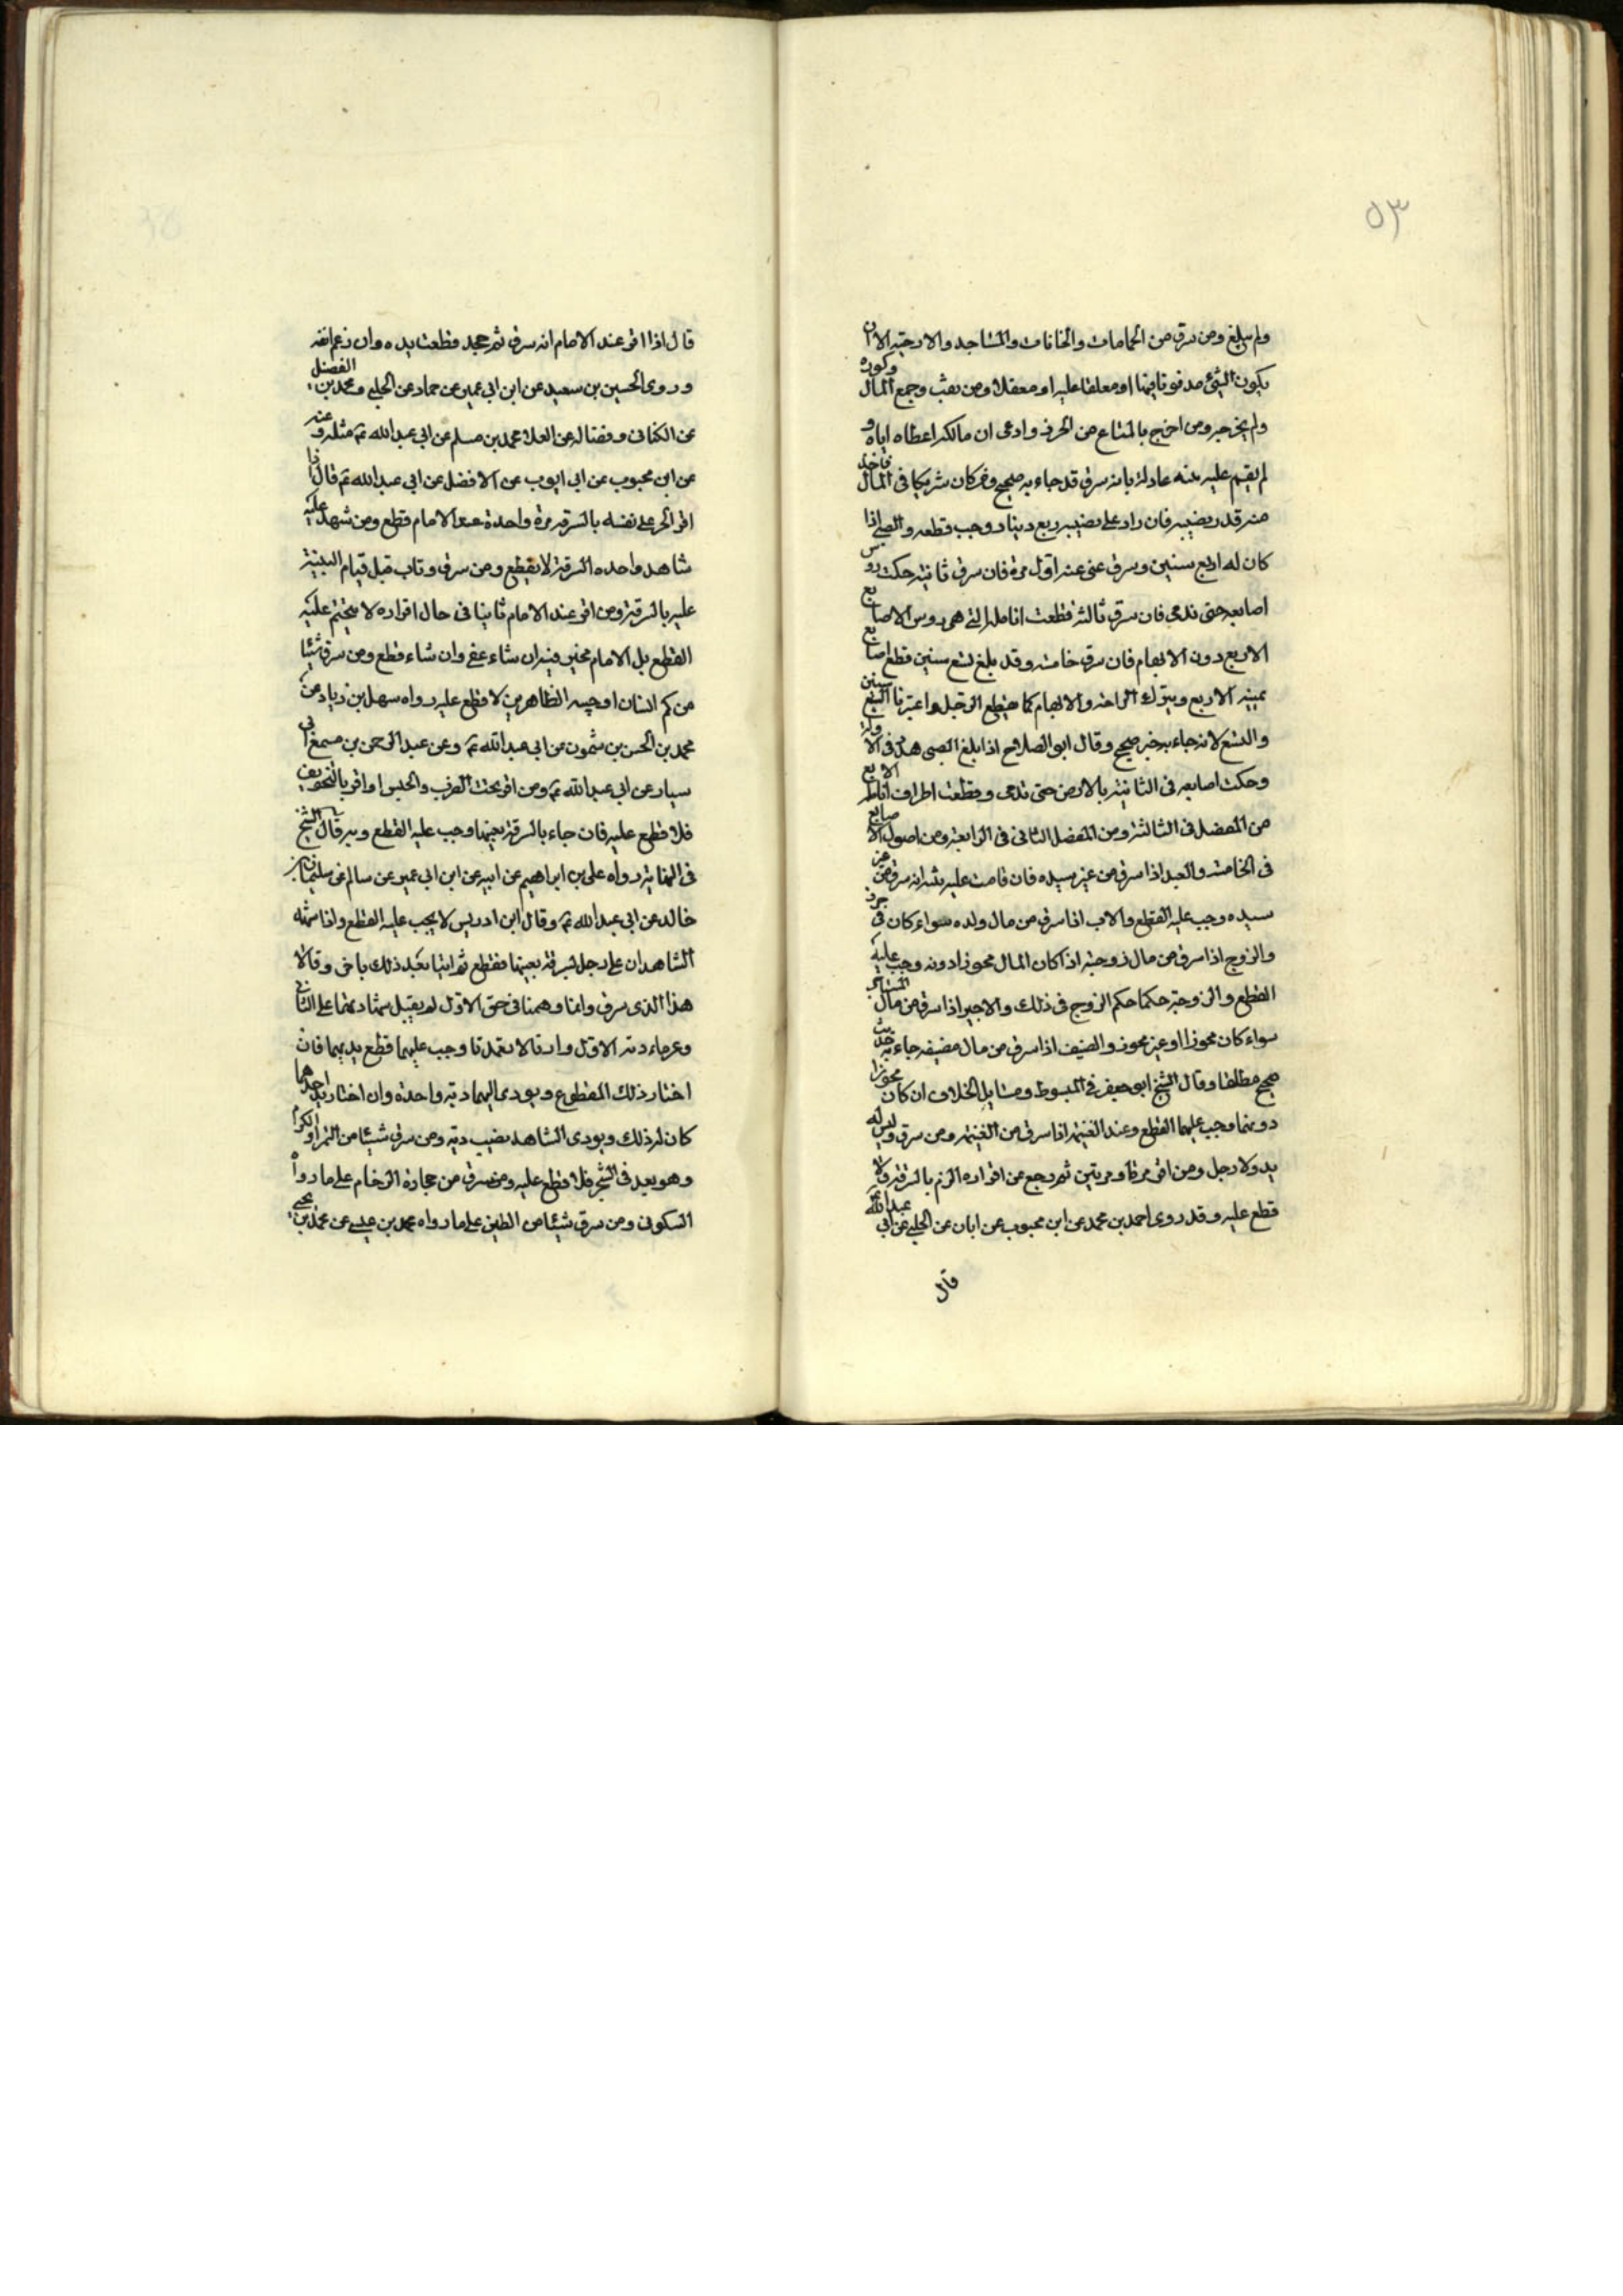 ٥٣
ولم يبلغ ومن سرق من الحمامات والخانات والمساجد والارحية الا ان
يكون الشئ مدفونا فيها او معلقا عليه او معقلا ومن نقب وجمع المال وكوره
ولم يخرجه ومن اخرج بالمتاع من الحرز وادعى ان مالكه اعطاه اياه و
لم يقم عليه بينة عادلة بانه سرق قد جاء به صحيح ومن كان شريكا في المال فاخذ
منه قدر نصيبه فان زاد على نصيبه ربع دينار وجب قطعه والصبي اذا
كان له اربع سنين وسرق عفى عنه اول مرة فان سرق ثانية حكت روس
اصابعه حتى تدمى فان سرق ثالثة قطعت انامله التي هي روس الاصابع
الاربع دون الابهام فان سرق خامسة وقد بلغ تسع سنين قطع اصابع
يمينه الاربع ويترك الراحة والابهام كما يقطع الرجل واعتبرنا السبع سنين
والتسع لانه جاء به خبر صحيح وقال ابو الصلاح اذا بلغ الصبي هدد في الاولة
وحكت اصابعه في الثانية بالارض حتى تدمى وقطعت اطراف انامله الاربع
من المفصل في الثالثة ومن المفصل الثاني في الرابعة ومن اصول الاصابع
في الخامسة والعبد اذا سرق من غير سيده فان قامت عليه بينة انه سرق من غير
سيده وجب عليه القطع والاب اذا سرق من مال ولده سواء كان في حرز
والزوج اذا سرق من مال زوجته اذا كان المال محوزا دونه وجب عليه
القطع والزوجة حكمها حكم الزوج في ذلك والاجير اذا سرق من مال المستاجر
سواء كان محوزا او غير محوز والضيف اذا سرق من مال مضيفه جاء به حديث
صحيح مطلقا وقال الشيخ ابو جعفر في المبسوط ومسايل الخلاف ان كان محوزا
دونهما وجب عليهما القطع وعند الغنيمة اذا سرق من الغنيمة ومن سرق وليس له
يد ولا رجل ومن اقر مرة او مرتين ثم رجع عن اقراره الزم بالسرقة ولا
قطع عليه وقد روى احمد بن محمد عن ابن محبوب عن ابان عن الحلبي عن ابي عبد الله
قال
قال اذا اقر عند الامام انه سرق ثم جحد قطعت يده وان زعم انفه
وروى الحسين بن سعيد عن ابن ابي عمير عن حماد عن الحلبي ومحمد بن الفضل
عن الكناني وفضالة عن العلا عن محمد بن مسلم عن ابي عبد الله ع مثله وعنه
عن ابن محبوب عن ابي ايوب عن الافضل عن ابي عبد الله ع قال اذا
اقر الحر على نفسه بالسرقة مرة واحدة عند الامام قطع ومن شهد عليه
شاهد واحد بالسرقة لا يقطع ومن سرق وتاب قبل قيام البينة
عليه بالسرقة ومن اقر عند الامام تائبا في حال اقراره لا يتحتم عليه
القطع بل الامام مخير فيه ان شاء عفى وان شاء قطع ومن سرق شيئا
من كم انسان او جيبه الظاهرين لا قطع عليه رواه سهل بن زياد عن
محمد بن الحسن بن شمون عن ابي عبد الله ع وعن عبد الرحمن بن مسمع ابي
سيار عن ابي عبد الله ع ومن اقر تحت الضرب والحبس او اقر بالتخويف
فلا قطع عليه فان جاء بالسرقة بعينها وجب عليه القطع وبه قال الشيخ
في النهاية رواه علي بن ابراهيم عن ابيه عن ابن ابي عمير عن سالم عن سليمان بن
خالد عن ابي عبد الله ع وقال ابن ادريس لا يجب عليه القطع واذا شهد
الشاهدان على رجل بسرقة بعينها فقطع ثم اتيا بعد ذلك باخر وقالا
هذا الذي سرق وانما وهمنا في حق الاول لم يقبل شهادتهما على الثاني
وغرماء دية الاول وان قالا تعمدنا وجب عليهما قطع يديهما فان
اختار ذلك المقطوع ويودى اليهما دية واحدة وان اختار يد احدهما
كان له ذلك ويودى الشاهد نصيب ديته ومن سرق شيئا من الثمر او الكرم
وهو بعد في الشجر فلا قطع عليه ومن سرق من حجارة الرخام على ما رواه
السكوني ومن سرق شيئا من الطين على ما رواه محمد بن عيسى عن محمد بن يحيى